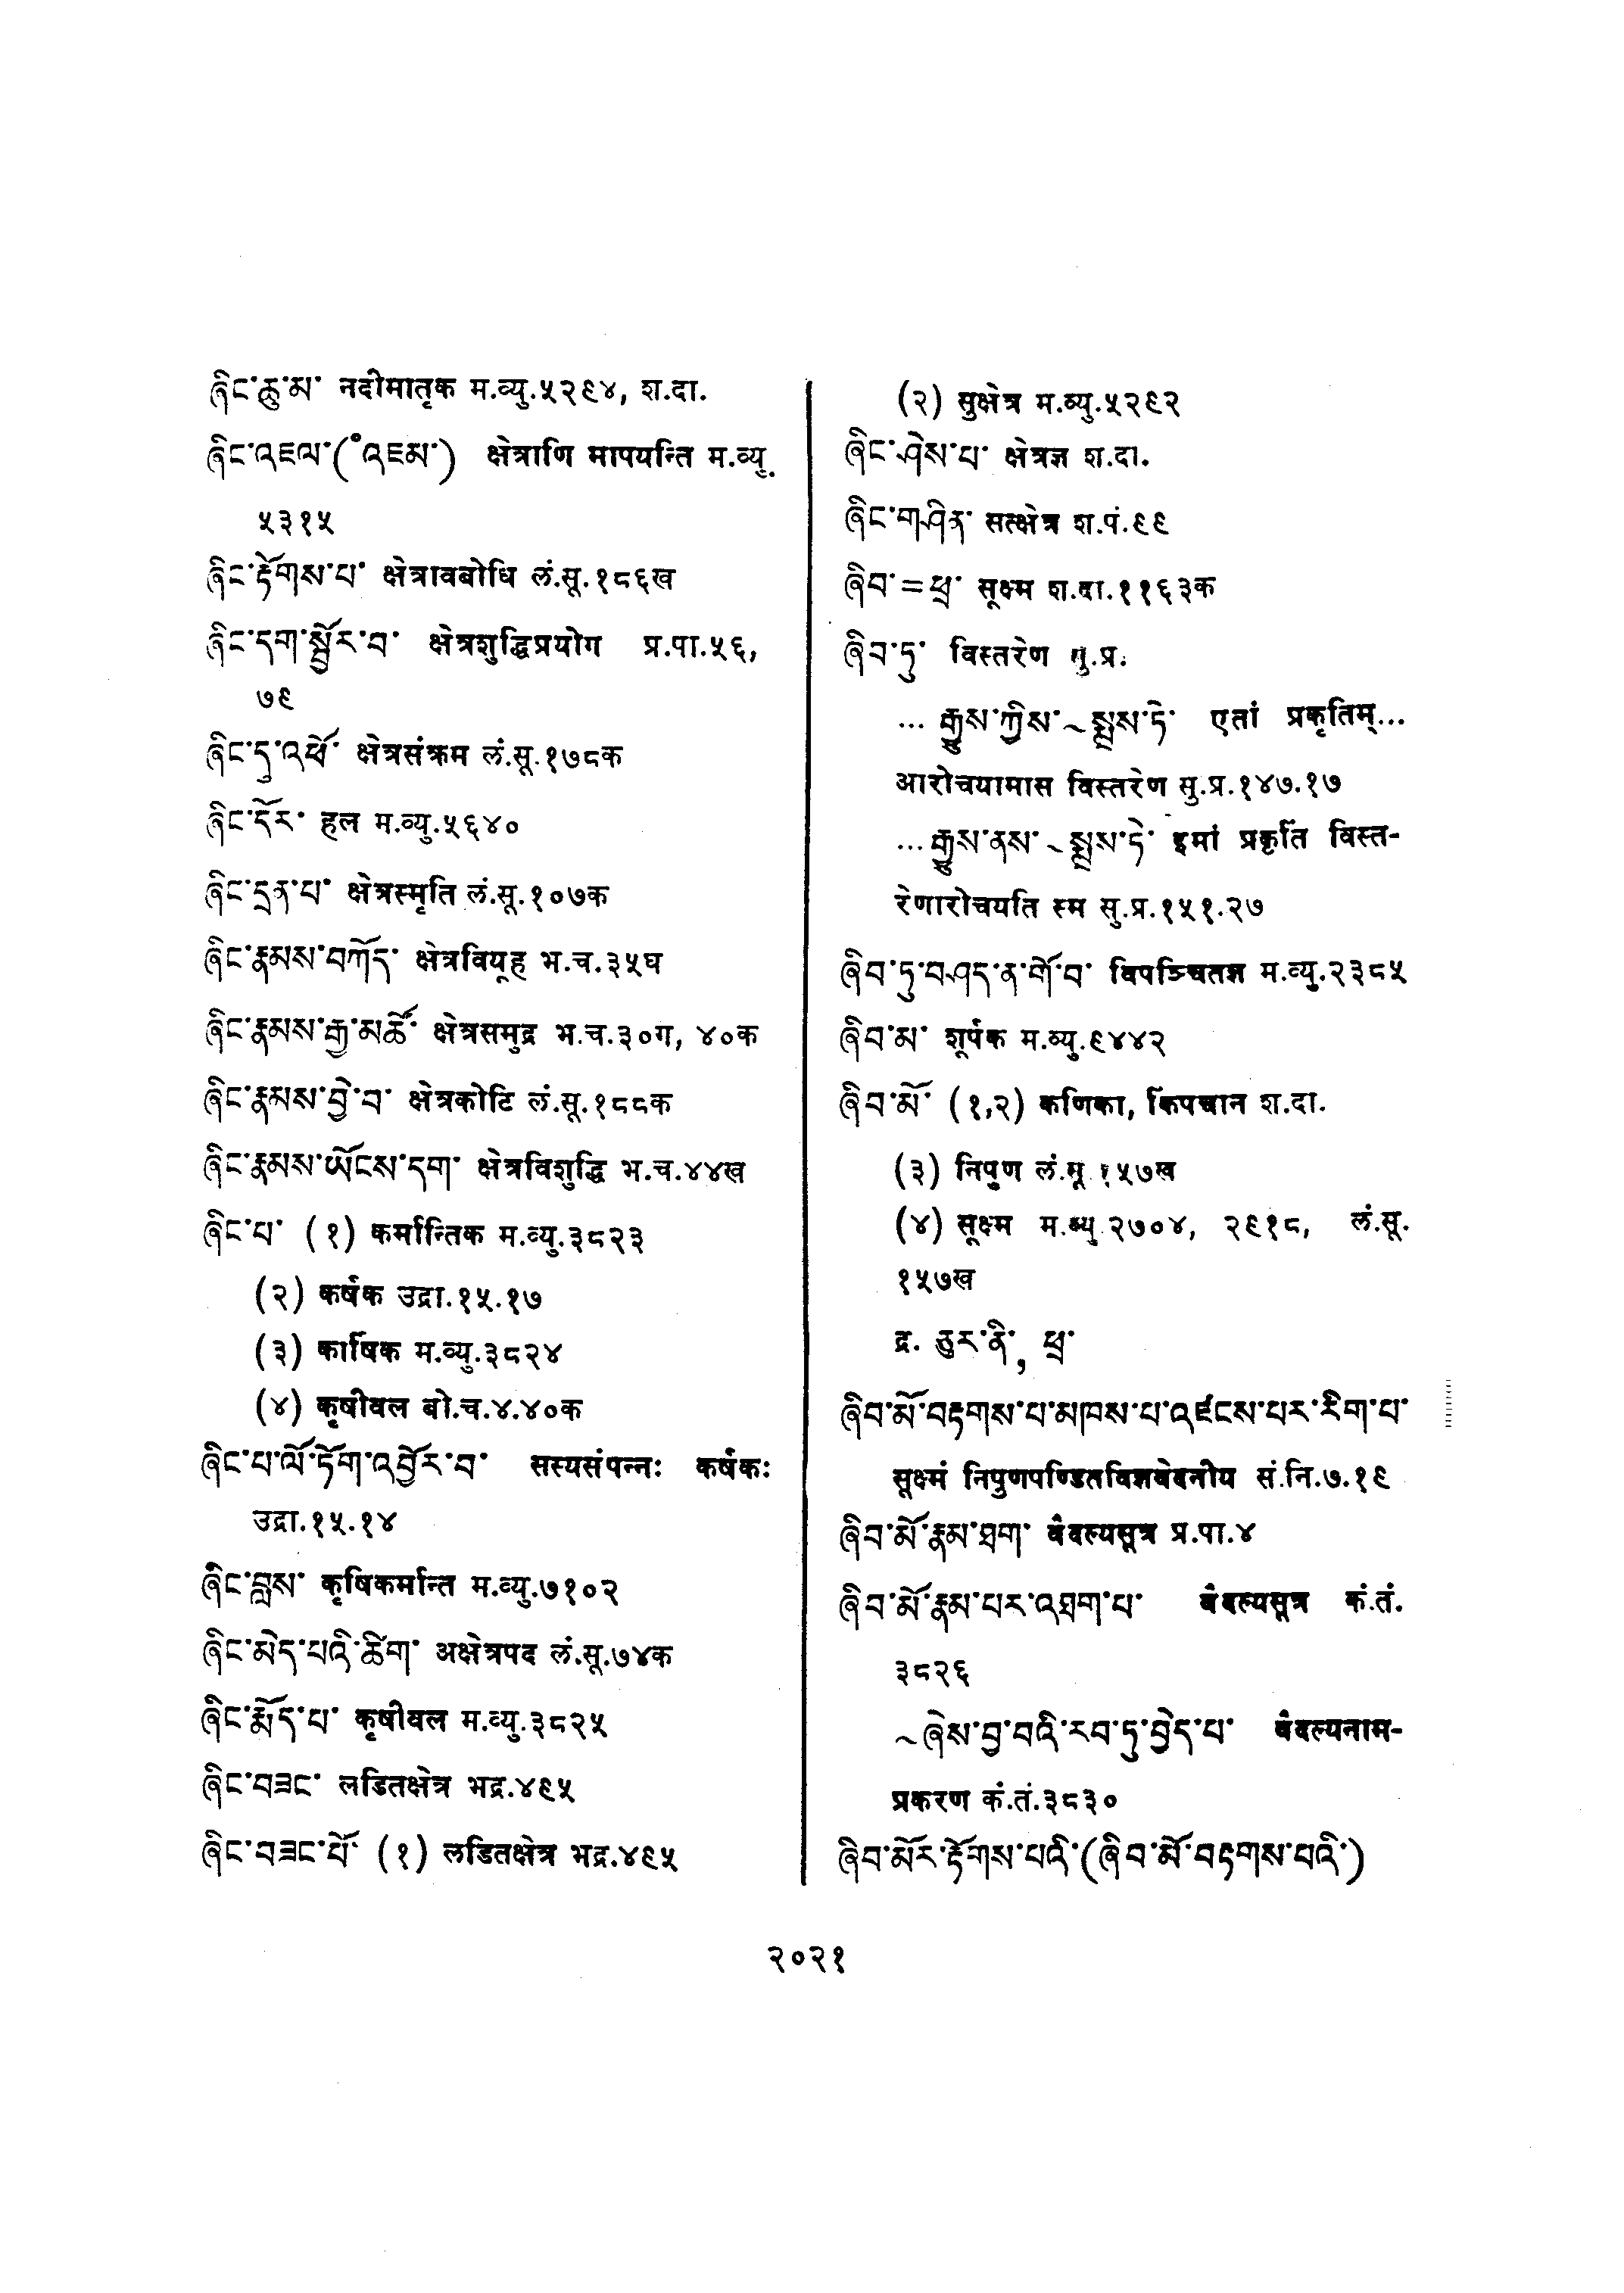 ཞིང་ཆུ་མ་ नदीमातृक म.व्यु.५२९४, श.दा.
ཞིང་འཇལ་(་འཇམ་) क्षेत्राणि मापयन्ति म.व्यु.
५३१५
ཞིང་རྟོགས་པ་ क्षेत्रावबोधि लं.सू.१८६ख
ཞིང་དག་སྦྱོར་བ་ क्षेत्रशुद्धिप्रयोग प्र.पा.५६,
७९
ཞིང་དུ་འཕོ་ क्षेत्रसंक्रम लं.सू.१७८क
ཞིང་དོར་ हल म.व्यु.५६४०
ཞིང་དྲན་པ་ क्षेत्रस्मृति लं.सू.१०७क
ཞིང་རྣམས་བཀོད་ क्षेत्रवियूह भ.च.३५घ
ཞིང་རྣམས་རྒྱ་མཚོ་ क्षेत्रसमुद्र भ.च.३०ग, ४०क
ཞིང་རྣམས་བྱེ་བ་ क्षेत्रकोटि लं.सू.१८८क
ཞིང་རྣམས་ཡོངས་དག་ क्षेत्रविशुद्धि भ.च.४४ख
ཞིང་པ་ (१) कर्मान्तिक म.व्यु.३८२३
(२) कर्षक उद्रा.१५.१७
(३) कार्षिक म.व्यु.३८२४
(४) कृषीवल बो.च.४.४०क
ཞིང་པ་ལོ་ཏོག་འབྱོར་བ་ सस्यसंपन्नः कर्षकः
उद्रा.१५.१४
ཞིང་བླས་ कृषिकर्मान्त म.व्यु.७१०२
ཞིང་མེད་པའི་ཚིག་ अक्षेत्रपद लं.सू.७४क
ཞིང་རྨོད་པ་ कृषीवल म.व्यु.३८२५
ཞིང་བཟང་ लडितक्षेत्र भद्र.४९५
ཞིང་བཟང་པོ་ (१) लडितक्षेत्र भद्र.४९५
(२) सुक्षेत्र म.व्यु.५२९२
ཞིང་ཤེས་པ་ क्षेत्रज्ञ श.दा.
ཞིང་གཤིན་ सत्क्षेत्र श.पं.९९
ཞིབ་=ཕྲ་ सूक्ष्म श.दा.११६३क
ཞིབ་ཏུ་ विस्तरेण सु.प्र.
... རྒྱུས་ཀྱིས་~སྨྲས་ཏེ་ एतां प्रकृतिम्...
आरोचयामास विस्तरेण सु.प्र.१४७.१७
...རྒྱུས་ནས་~སྨྲས་ཏེ་ इमां प्रकृतिं विस्त-
रेणारोचयति स्म सु.प्र.१५१.२७
ཞིབ་ཏུ་བཤད་ན་གོ་བ་ विपञ्चितज्ञ म.व्यु.२३८५
ཞིབ་མ་ शूर्पक म.व्यु.९४४२
ཞིབ་མོ་ (१,२) कणिका, किंपचान श.दा.
(३) निपुण लं.सू.१५७ख
(४) सूक्ष्म म.व्यु.२७०४, २९१८, लं.सू.
१५७ख
द्र. ཅུར་ནི་, ཕྲ་
ཞིབ་མོ་བརྟགས་པ་མཁས་པ་འཛངས་པར་རིག་པ་
सूक्ष्मं निपुणपण्डितविज्ञवेदनीय सं.नि.७.१९
ཞིབ་མོ་རྣམ་ཐག་ वैदल्यसूत्र प्र.पा.४
ཞིབ་མོ་རྣམ་པར་འཐག་པ་ वैदल्यसूत्र कं.तं.
३८२६
~ཞེས་བྱ་བའི་རབ་ཏུ་བྱེད་པ་ वैदल्यनाम-
प्रकरण कं.तं.३८३०
ཞིབ་མོར་རྟོགས་པའི་(ཞིབ་མོ་བརྟགས་པའི་)
२०२१